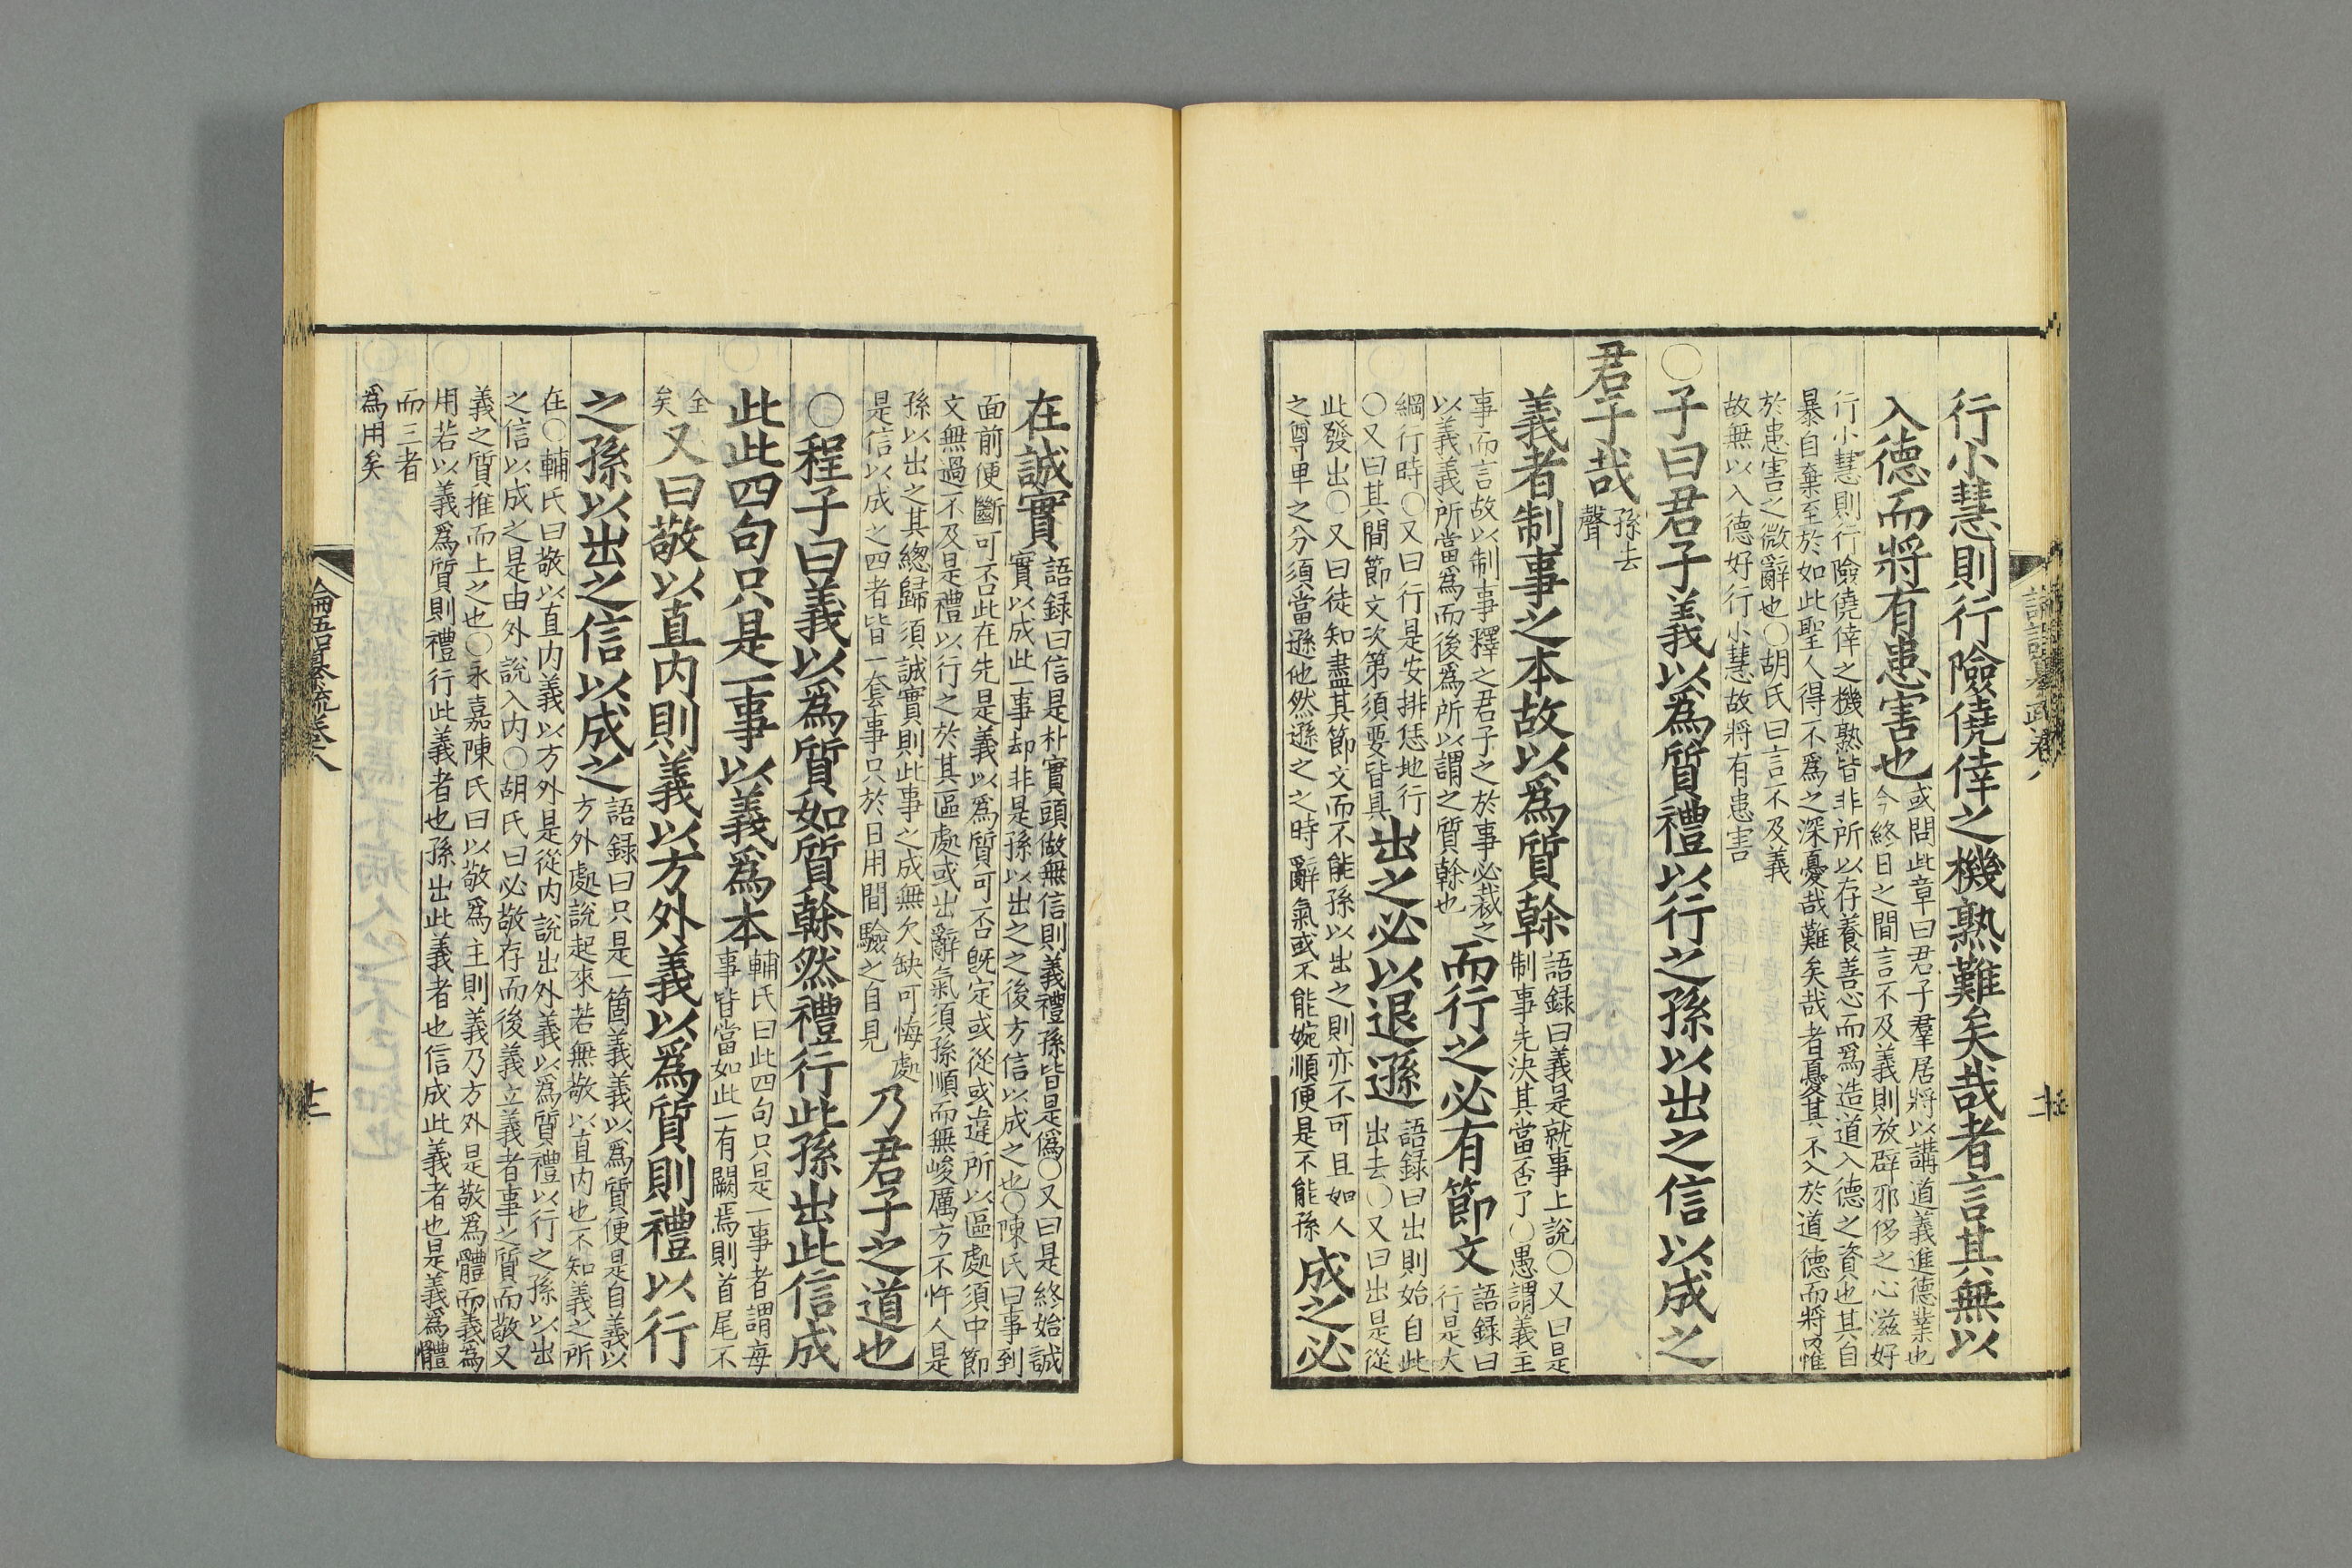 行小慧則行險僥倖之機熟難矣哉者言其無以
入德而將有患害也
或問此章曰君子羣居將以講道義進德業也
今終日之間言不及義則放辟邪侈之心滋好
行小慧則行險僥倖之機熟皆非所以存養善心而爲造道入德之資也其自
暴自棄至於如此聖人得不爲之深憂哉難矣哉者憂其不入於道德而將罹
於患害之微辭也○胡氏曰言不及義
故無以入德好行小慧故將有患害
○子曰君子義以爲質禮以行之孫以出之信以成之
君子哉
孫去
聲
義者制事之本故以爲質幹
語録曰義是就事上說○又曰是
制事先決其當否了○愚謂義主
事而言故以制事釋之君子之於事必裁之
以義義所當爲而後爲所以謂之質幹也
而行之必有節文
語録曰
行是大
綱行時○又曰行是安排恁地行
○又曰其間節文次第須要皆具
出之必以退遜
語録曰出則始自此
出去○又曰出是從
此發出○又曰徒知盡其節文而不能孫以出之則亦不可且如人
之尊卑之分須當遜他然遜之之時辭氣或不能婉順便是不能孫
成之必
論語纂疏卷八
在誠實
語録曰信是朴實頭做無信則義禮孫皆是僞○又曰是終始誠
實以成此一事却非是孫以出之之後方信以成之也○陳氏曰事到
面前便斷可不否此在先是義以爲質可否既定或從或違所以區處須中節
文無過不及是禮以行之於其區處或出辭氣須孫順而無峻厲方不忤人是
孫以出之其總歸須誠實則此事之成無欠缺可悔處
是信以成之四者皆一套事只於日用間驗之自見
乃君子之道也
○程子曰義以爲質如質幹然禮行此孫出此信成
此此四句只是一事以義爲本
輔氏曰此四句只是一事者謂每
事皆當如此一有闕焉則首尾不
全
矣
又曰敬以直内則義以方外義以爲質則禮以行
之孫以出之信以成之
語録曰只是一箇義義以爲質便是自義以
方外處說起來若無敬以直内也不知義之所
在○輔氏曰敬以直内義以方外是從内說出外義以爲質禮以行之孫以出
之信以成之是由外說入内○胡氏曰必敬存而後義立義者事之質而敬又
義之質推而上之也○永嘉陳氏曰以敬爲主則義乃方外是敬爲體而義爲
用若以義爲質則禮行此義者也孫出此義者也信成此義者也是義爲體
而三者
爲用矣
論語纂疏卷八